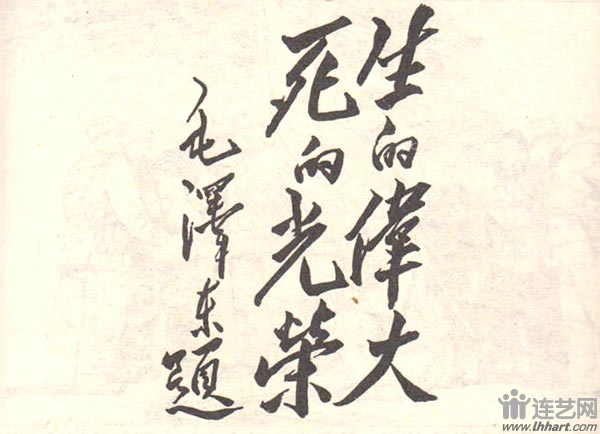 生的偉大
死的光榮
毛澤东題
连艺网
www.lhhart.com